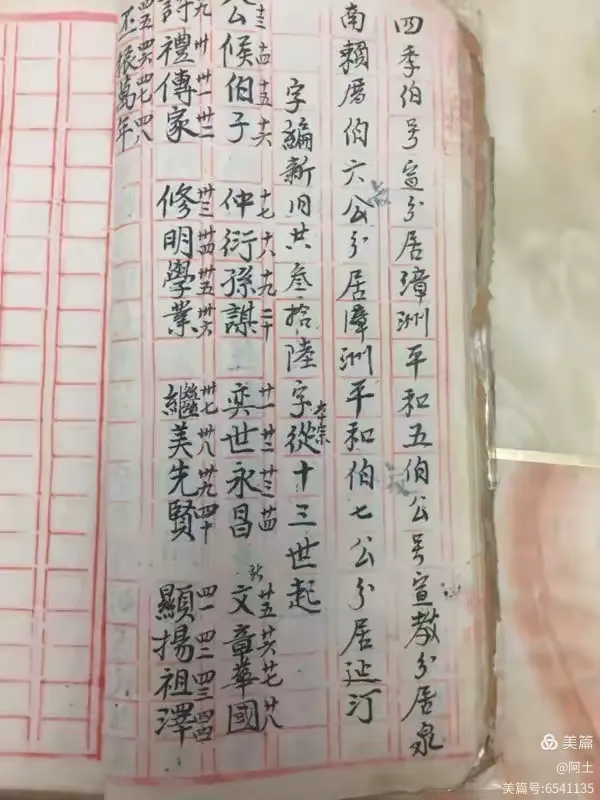 四季伯号宣分居璋洲平和五伯公号宣教分居泉
南賴厝伯六公分居障洲平和伯七公分居延汀
本宗
字編新旧共叁拾陸字從十三世起
十三 十四 十五 十六 十七 十八 十九 二十 廿一 廿二 廿三 廿四 廿五 廿六 廿七 廿八
公候伯子 仲衍孫謀 奕世永昌 文章華國
九 卅 卅一 卅二 卅三 卅四 卅五 卅六 卅七 卅八 卅九 四十 四一 四二 四三 四四
詩禮傳家 修明學業 繼美先賢 顯揚祖澤
四五 四六 四七 四八
丕振萬年
美篇
@阿土
美篇号:6541135